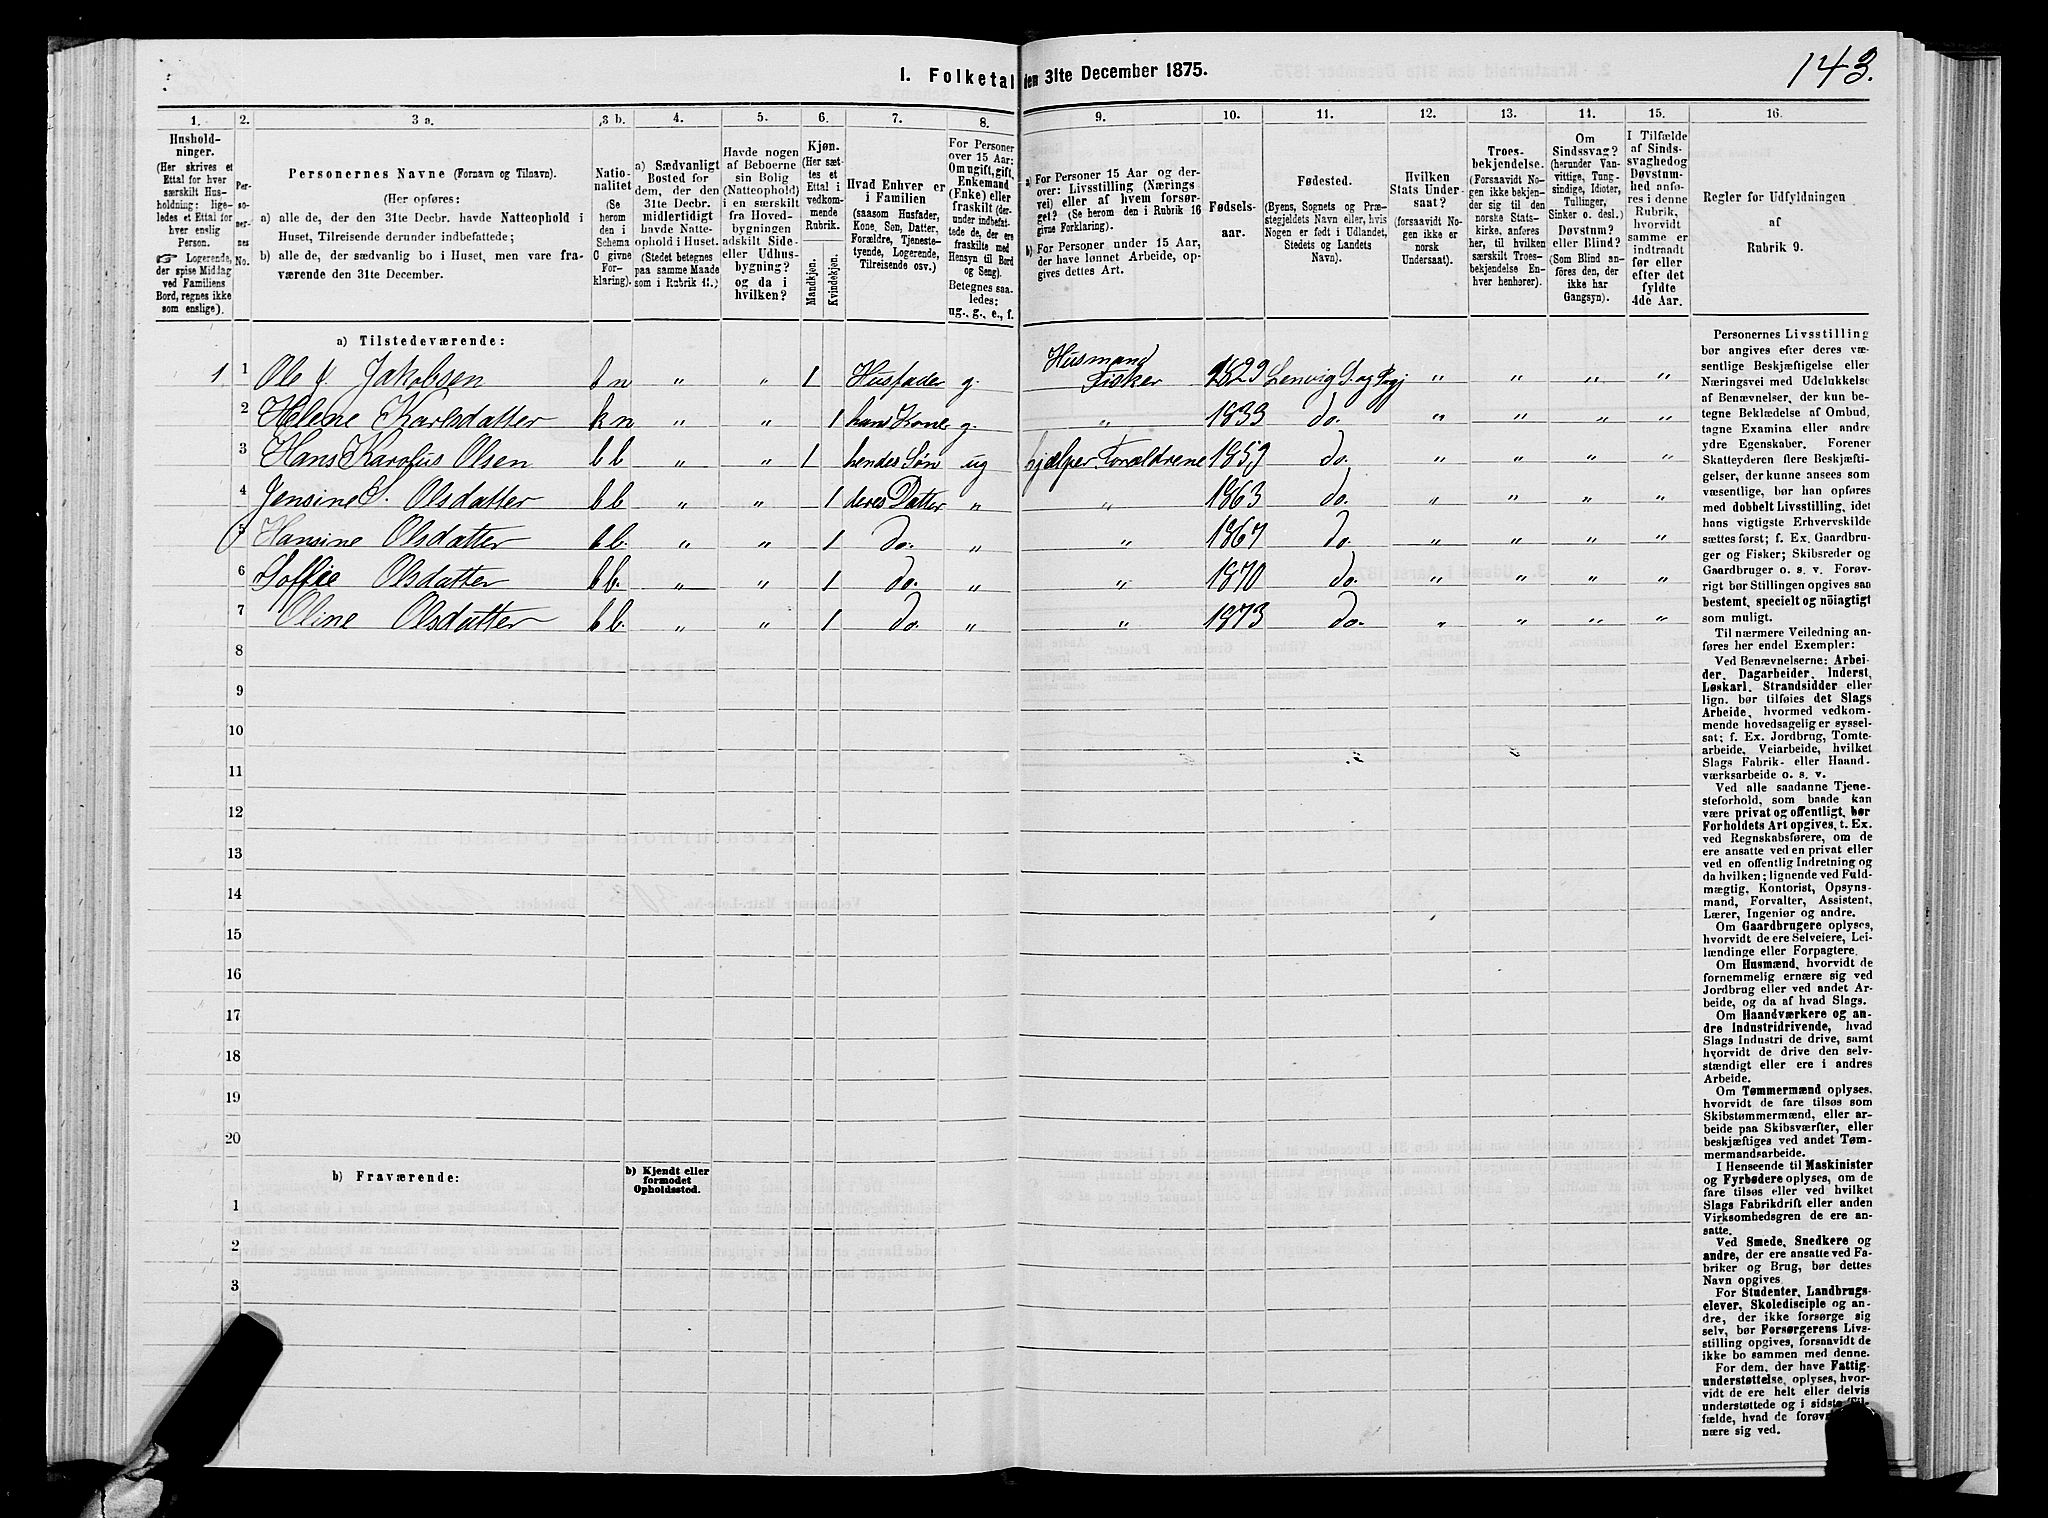 1. Folketal den 31te December 1875.
143.
1.
Hushold-
ninger.
(Her skrives et
Ettal for hver
særskilt Hus-
holdning; lige-
ledes et Ettal for
hver enslig
Person.
☞ Logerende,
der spise Middag
ved Familiens
Bord, regnes ikke
som enslige).
2.
Per-
so-
ner-
nes
No.
3 a.
Personernes Navne (Fornavn og Tilnavn).
(Her opføres:
a) alle de, der den 31te Decbr. havde Natteophold i
Huset, Tilreisende derunder indbefattede;
b) alle de, der sædvanlig bo i Huset, men vare fra-
værende den 31te December.)
3 b.
Natio-
nalitet
(Se
herom
den i
Schema
C givne
For-
klaring).
4.
a) Sædvanligt
Bosted for
dem, der den
31te Decbr.
midlertidigt
havde Natte-
ophold i Huset.
(Stedet betegnes
paa samme Maade
som i Rubrik 11.)
5.
Havde nogen
af Beboerne
sin Bolig
(Natteophold)
i en særskilt
fra Hoved-
bygningen
adskilt Side-
eller Udhus-
bygning?
og da i
hvilken?
6.
Kjøn.
(Her sæt-
tes et
Ettal i
vedkom-
mende
Rubrik.
Mandkjøn.
Kvindekjøn.
7.
Hvad Enhver er
i Familien
(saasom Husfader,
Kone, Søn, Datter,
Forældre, Tjeneste-
tyende, Logerende,
Tilreisende osv.)
8.
For Personer
over 15 Aar:
Om ugift, gift,
Enkemand
(Enke) eller
fraskilt (der-
under indbefat-
tede de, der ere
fraskilte med
Hensyn til Bord
og Seng).
Betegnes saa-
ledes:
ug., g., e., f.
9.
a) For Personer 15 Aar og der-
over: Livsstilling (Nærings-
vei) eller af hvem forsør-
get? (Se herom den i Rubrik 16
givne Forklaring).
b) For Personer under 15 Aar,
der have lønnet Arbeide, op-
gives dettes Art.
10.
Fødsels-
aar.
11.
Fødested.
(Byens, Sognets og Præ-
stegjeldets Navn eller, hvis
Nogen er født i Udlandet,
Stedets og Landets
Navn).
12.
Hvilken
Stats Under-
saat?
(forsaavidt No-
gen ikke er
norsk
Undersaat).
13.
Troes-
bekjendelse.
(Forsaavidt No-
gen ikke bekjen-
der sig til den
norske Stats-
kirke, anføres
her, til hvilken
særskilt Troes-
bekjendelse En-
hver henhører).
14.
Om
Sindssvag?
(herunder Van-
vittige, Tung-
sindige, Idioter,
Tullinger,
Sinker o. desl.)
Døvstum?
eller Blind?
(Som Blind an-
føres den, der
ikke har
Gangsyn).
15.
I Tilfælde
af Sinds-
svaghed og
Døvstum-
hed anfø-
res i denne
Rubrik,
hvorvidt
samme er
indtraadt
før eller
efter det
fyldte
4de Aar.
16.
Regler for Udfyldningen
af
Rubrik 9.
a) Tilstedeværende:
1 1 Ole J. Jakobsen b n „ „ 1 Husfader g. Husmand Fisker 1829 Lenvig S. og Pgj „ „ „ „
2 Helene Karlsdatter k n „ „ 1 hans Kone g. „ 1833 do. „ „ „ „
3 Hans Karolius Olsen b b „ „ 1 hendes Søn ug hjælper Forældrene 1859 do. „ „ „ „
4 Jensine S. Olsdatter b b „ „ 1 deres Datter „ „ 1863 do. „ „ „ „
5 Hansine Olsdatter b b. „ „ 1 do. „ „ 1867 do „ „ „ „
6 Soffie Olsdatter b b. „ „ 1 do. „ „ 1870 do. „ „ „ „
7 Oline Olsdatter b b. „ „ 1 do. „ „ 1873 do. „ „ „ „
8
9
10
11
12
13
14
15
16
17
18
19
20
b) Fraværende:
b) Kjendt eller
formodet
Opholdssted.
1
2
3
Personernes Livsstilling
bør angives efter deres væ-
sentlige Beskjæftigelse eller
Næringsvei med Udelukkelse
af Benævnelser, der kun be-
tegne Beklædelse af Ombud,
tagne Examina eller andre
ydre Egenskaber. Forener
Skatteyderen flere Beskjæfti-
gelser, der kunne ansees som
væsentlige, bør han opføres
med dobbelt Livsstilling, idet
hans vigtigste Erhvervskilde
sættes først; f. Ex. Gaardbru-
ger og Fisker; Skibsreder og
Gaardbruger o. s. v. Forøv-
rigt bør Stillingen opgives saa
bestemt, specielt og nöiagtigt
som muligt.
Til nærmere Veiledning an-
føres her endel Exempler:
Ved Benævnelserne: Arbei-
der, Dagarbeider, Inderst,
Løskarl, Strandsidder eller
lign. bør tilføies det Slags
Arbeide, hvormed vedkom-
mende hovedsagelig er syssel-
sat; f. Ex. Jordbrug, Tomte-
arbeide, Veiarbeide, hvilket
Slags Fabrik- eller Haand-
værksarbeide o. s. v.
Ved alle saadanne Tjene-
steforhold, som baade kan
være privat og offentligt, bør
Forholdets Art opgives, t. Ex.
ved Regnskabsførere, om de
ere ansatte ved en privat eller
ved en offentlig Indretning og
da hvilken; lignende ved Fuld-
mægtig, Kontorist, Opsyns-
mand, Forvalter, Assistent,
Lærer, Ingeniør og andre.
Om Gaardbrugere oplyses,
hvorvidt de ere Selveiere, Lei-
lændinge eller Forpagtere.
Om Husmænd, hvorvidt de
fornemmelig ernære sig ved
Jordbrug eller ved andet Ar-
beide, og da af hvad Slags.
Om Haandværkere og an-
dre Industridrivende, hvad
Slags Industri de drive, samt
hvorvidt de drive den selv-
stændigt eller ere i andres
Arbeide.
Om Tømmermænd oplyses,
hvorvidt de fare tilsøs som
Skibstømmermænd, eller ar-
beide paa Skibsværfter, eller
beskjæftiges ved andet Tøm-
mermandsarbeide.
I Henseende til Maskinister
og Fyrbødere oplyses, om de
fare tilsøs eller ved hvilket
Slags Fabrikdrift eller anden
Virksomhedsgren de ere an-
satte.
Ved Smede, Snedkere og
andre, der ere ansatte ved Fa-
briker og Brug, bør dettes
Navn opgives
For Studenter, Landbrugs-
elever, Skoledisciple og an-
dre, der ikke forsørge sig
selv, bør Forsørgerens Livs-
stilling opgives, forsaavidt de
ikke bo sammen med denne.
For dem, der have Fattig-
understøttelse, oplyses, hvor-
vidt de ere helt eller delvis
understøttede og i sidste Til-
fælde, hvad de forøv
nære sig ved.